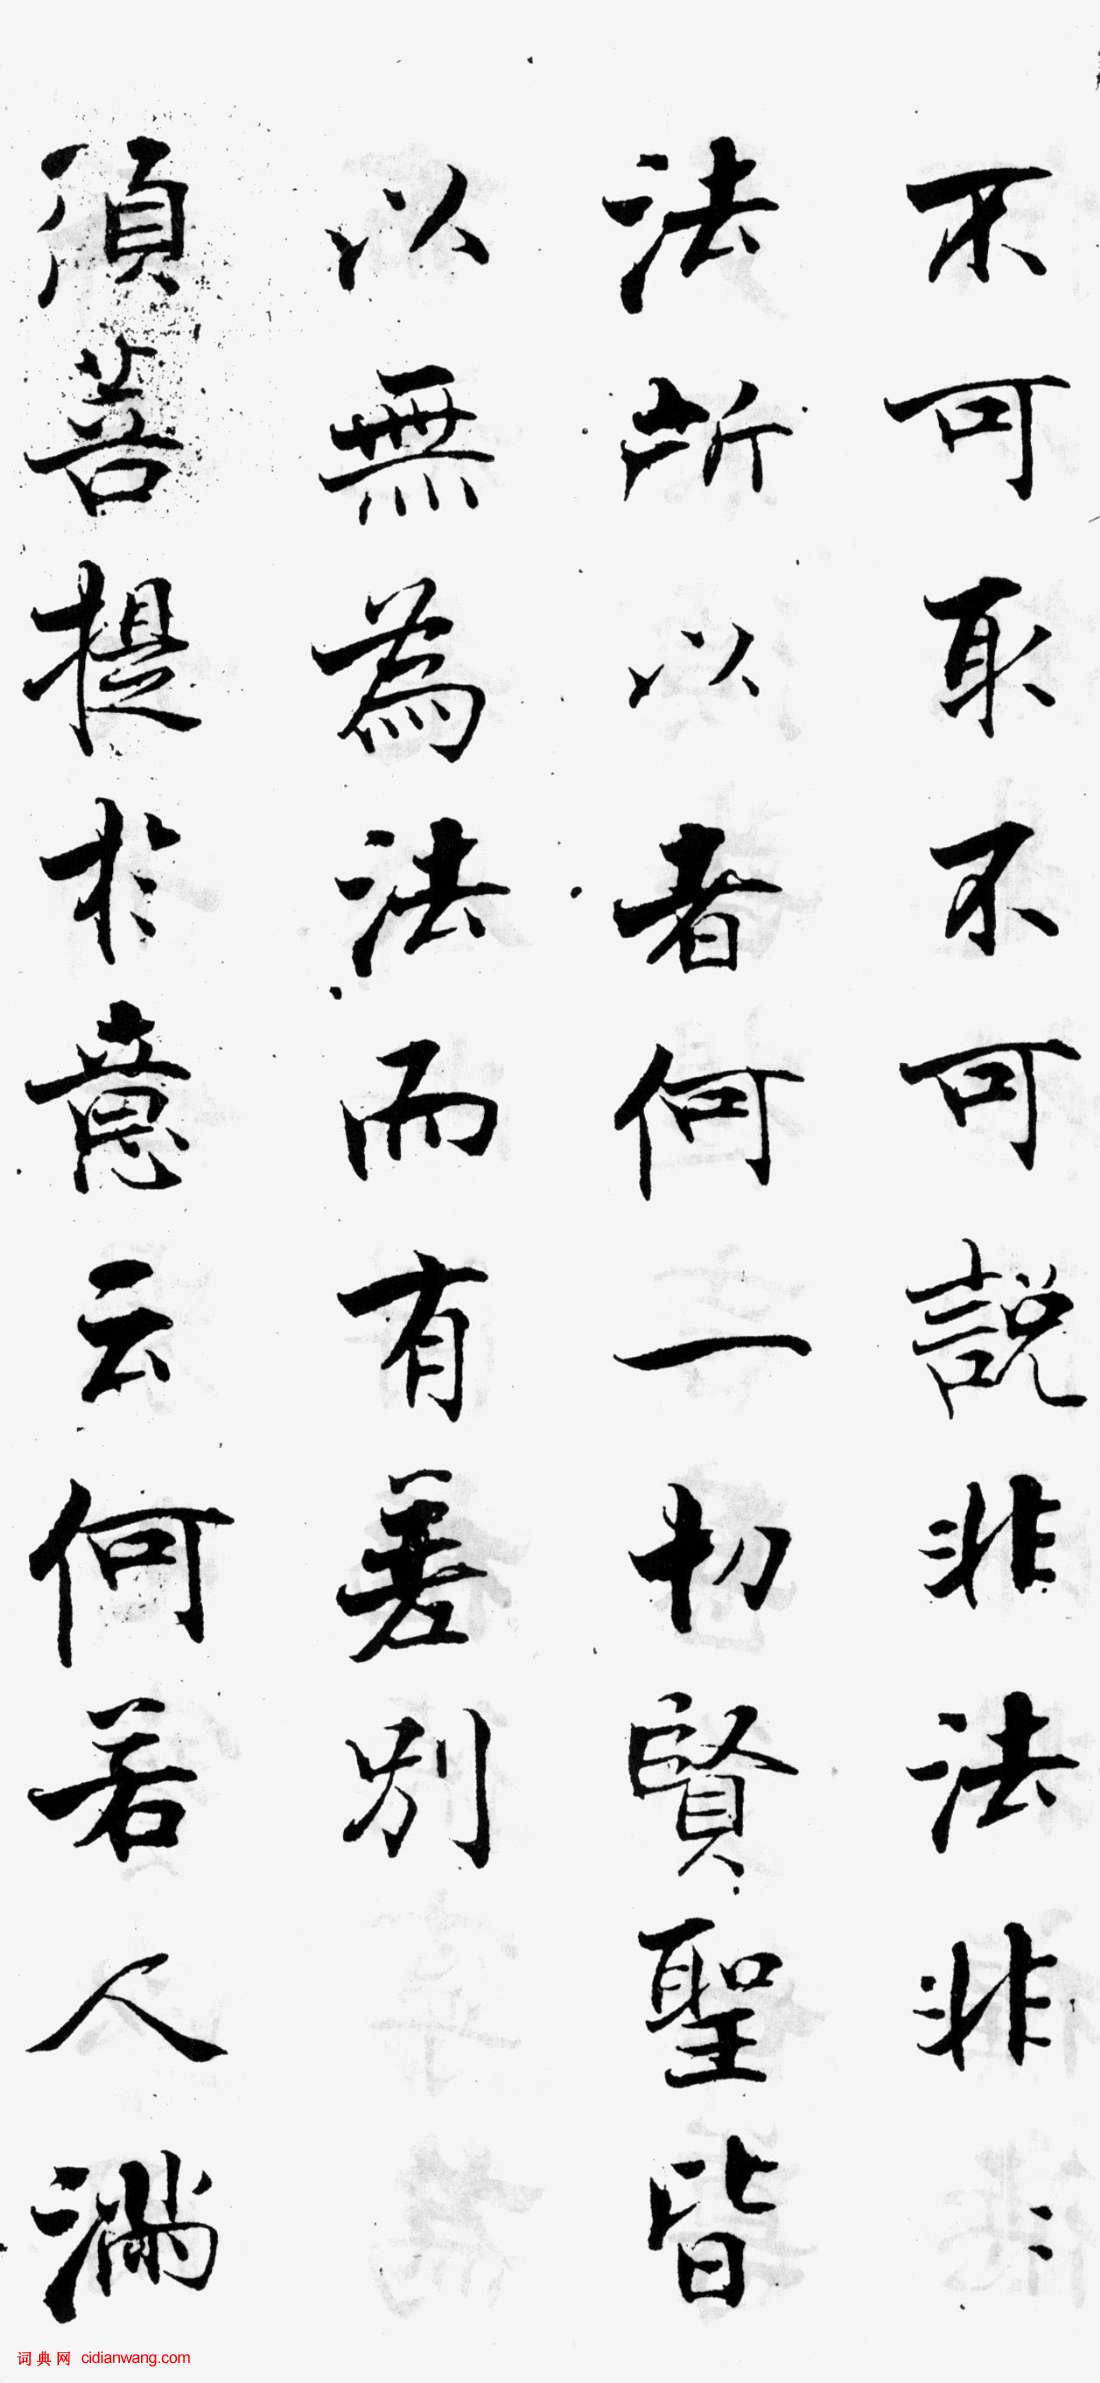 不可取不可說非法非〻
法所以者何一切賢聖皆
以無為法而有差別
須菩提於意云何若人滿
词典网 cidianwang.com